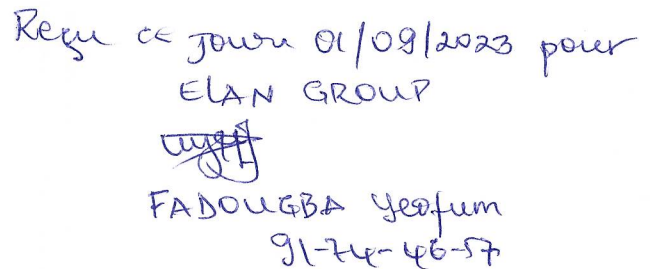 Reçu ce jour 01/09/2023 pour
ELAN GROUP
FADOUGBA
91-74-46-57